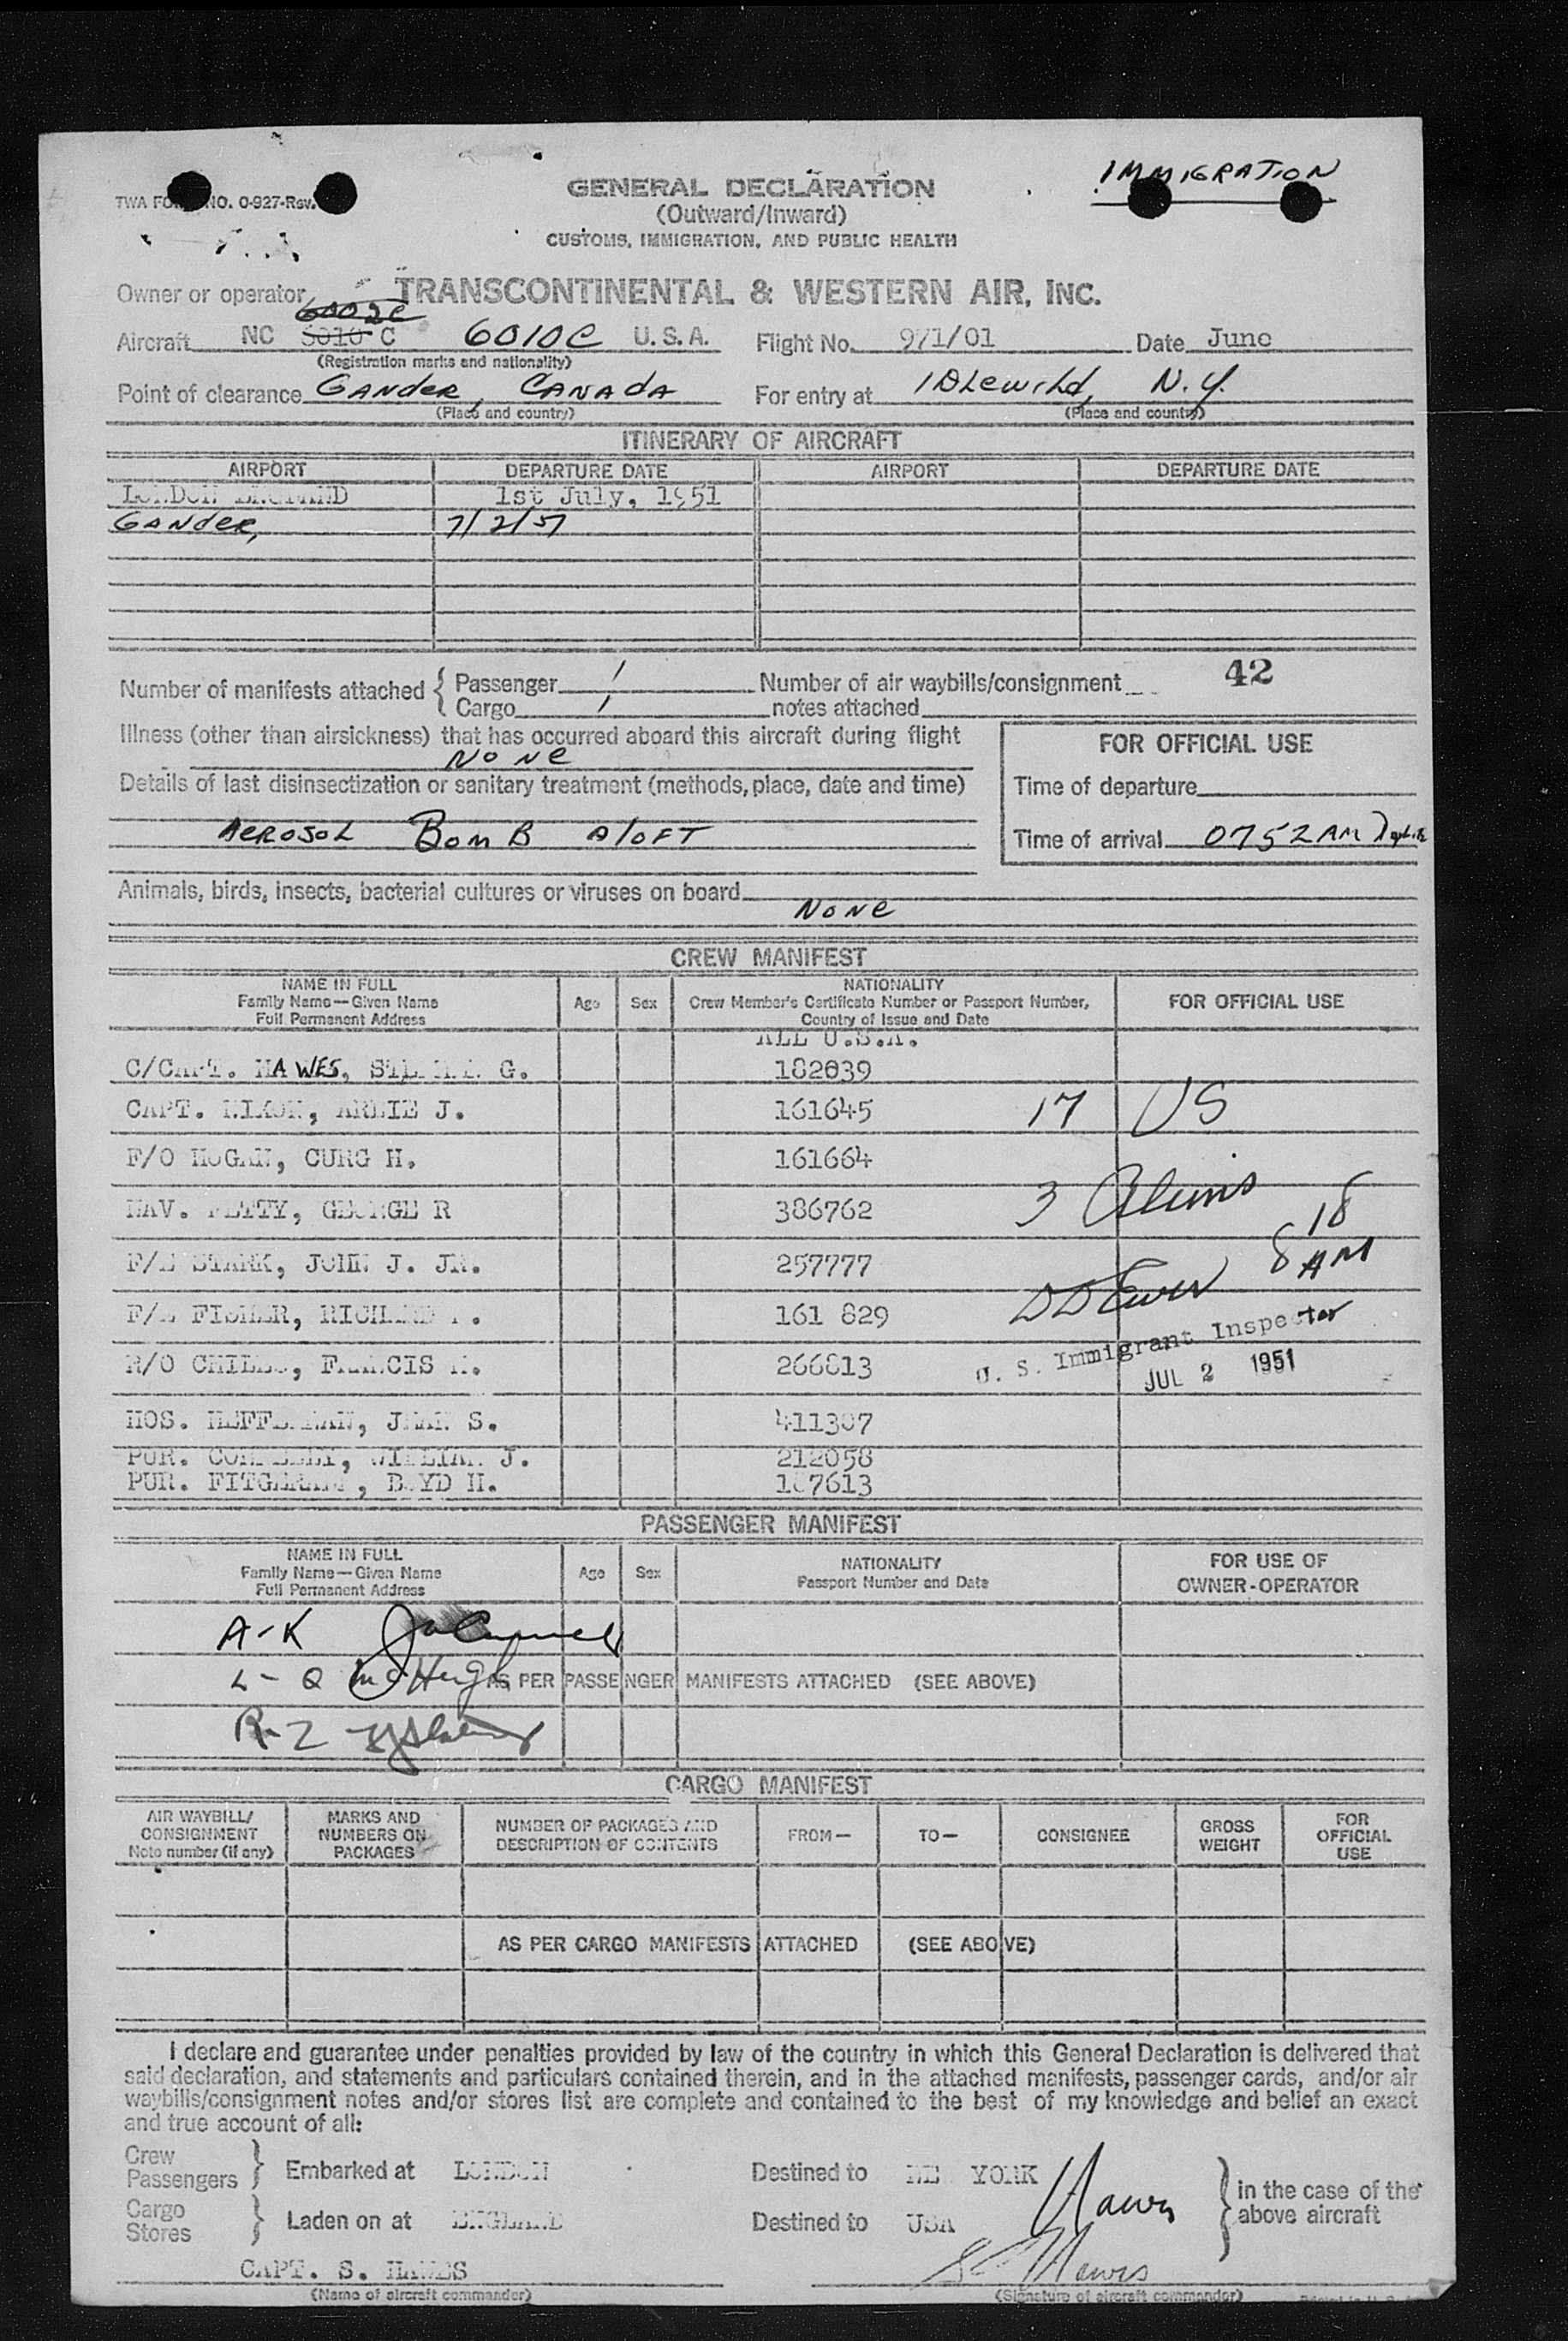 IMMIGRATION
TWA NO. O-927-Rev.
GENERAL DECLARATION
(Outward/Inward)
CUSTOMS, IMMIGRATION, AND PUBLIC HEALTH
Owner or operator TRANSCONTINENTAL & WESTERN AIR, INC.
6002C
Aircraft NC 6010 C 6010C U.S.A. Flight No. 971/01 Date June
(Registration marks and nationality)
Point of clearance GANDER, CANADA For entry at IDLEWILD, N.Y.
(Place and country) (Place and country)
ITINERARY OF AIRCRAFT
AIRPORT DEPARTURE DATE AIRPORT DEPARTURE DATE
LONDON ENGLAND 1st July, 1951
GANDER, 7/2/51
42
Number of manifests attached { Passenger 1 Number of air waybills/consignment
Cargo 1 notes attached
Illness (other than airsickness) that has occurred aboard this aircraft during flight
NONE
FOR OFFICIAL USE
Details of last disinsectization or sanitary treatment (methods, place, date and time)
Time of departure
AEROSOL BOMB ALOFT
Time of arrival 0752 AM
Animals, birds, insects, bacterial cultures or viruses on board
NONE
CREW MANIFEST
NAME IN FULL
Family Name—Given Name
Full Permanent Address
Age Sex
NATIONALITY
Crew Member's Certificate Number or Passport Number,
Country of Issue and Date
FOR OFFICIAL USE
ALL U.S.A.
C/CAPT. HAWES, G. 182039
CAPT. NIXON, ARLIE J. 161645 17 US
F/O HOGAN, CURG H. 161664
NAV. PETTY, GEORGE R 386762 3 Aliens
F/E STARK, JOHN J. JR. 257777 8 18 AM
F/E FISHER, RICHARD 161 829
U. S. Immigrant Inspector
R/O CHILDS, FRANCIS 266813 JUL 2 1951
HOS. HEFFERNAN, JEAN S. 411307
PUR. WILLIAM J. 212058
PUR. H. 7613
PASSENGER MANIFEST
NAME IN FULL
Family Name—Given Name
Full Permanent Address
Age Sex
NATIONALITY
Passport Number and Date
FOR USE OF
OWNER-OPERATOR
A-K
L-Q McHugh AS PER PASSENGER MANIFESTS ATTACHED (SEE ABOVE)
R-Z
CARGO MANIFEST
AIR WAYBILL/
CONSIGNMENT
Note number (if any)
MARKS AND
NUMBERS ON
PACKAGES
NUMBER OF PACKAGES AND
DESCRIPTION OF CONTENTS
FROM— TO— CONSIGNEE
GROSS
WEIGHT
FOR
OFFICIAL
USE
AS PER CARGO MANIFESTS ATTACHED (SEE ABOVE)
I declare and guarantee under penalties provided by law of the country in which this General Declaration is delivered that
said declaration, and statements and particulars contained therein, and in the attached manifests, passenger cards, and/or air
waybills/consignment notes and/or stores list are complete and contained to the best of my knowledge and belief an exact
and true account of all:
Crew
Passengers } Embarked at LONDON Destined to NEW YORK
Cargo
Stores } Laden on at ENGLAND Destined to USA Hawes
} in the case of the
above aircraft
CAPT. S. HAWES S Hawes
(Name of aircraft commander) (Signature of aircraft commander)